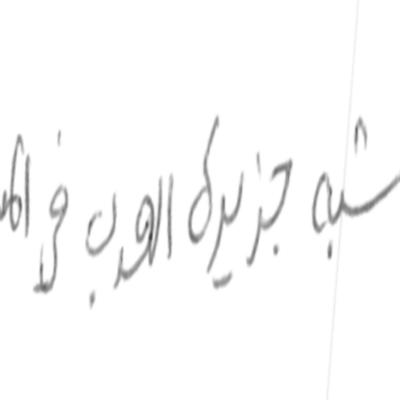 شبه جزيرة العرب في